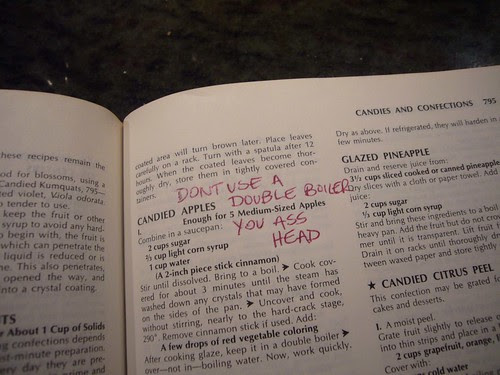 these recipes remain the
ood for blossoms, using a
Candied Kumquats, 795—
zed violet, Viola odorata.
o tender to use.
keep the fruit or other
syrup to avoid any hard-
o begin with, the fruit is
which can penetrate the
liquid is reduced or is
me. This also penetrates,
opened the way, and
into a crystal coating.
ITS
e About 1 Cup of Solids
ng confections depends
st-minute preparation.
ery day they are pre-
CANDIES AND CONFECTIONS 795
coated area will turn brown later. Place leaves
carefully on a rack. Turn with a spatula after 12
hours. When the candied leaves become thor-
oughly dry, store them in tightly covered con-
tainers.
DONT USE A
DOUBLE BOILER
YOU ASS
HEAD
CANDIED APPLES
I. Enough for 5 Medium-Sized Apples
Combine in a saucepan:
2 cups sugar
⅔ cup light corn syrup
1 cup water
(A 2-inch piece stick cinnamon)
Stir until dissolved. Bring to a boil. ➤ Cook cov-
ered for about 3 minutes until the steam has
washed down any crystals that may have formed
on the sides of the pan. ➤ Uncover and cook,
without stirring, nearly to the hard-crack stage,
290°. Remove cinnamon stick if used. Add:
A few drops of red vegetable coloring
After cooking glaze, keep it in a double boiler ➤
over—not in—boiling water. Now, work quickly.
Dry as above. If refrigerated, they will harden in
few minutes.
GLAZED PINEAPPLE
Drain and reserve juice from:
3½ cups sliced cooked or canned pineapple
Dry slices with a cloth or paper towel. Add
juice:
2 cups sugar
⅓ cup light corn syrup
Stir and bring these ingredients to a boil
heavy pan. Add the fruit but do not cro
mer until it is transparent. Lift fruit
Drain it on racks until thoroughly dr
tween waxed paper and store tightly
★ CANDIED CITRUS PEEL
This confection may be grated fo
cakes and desserts.
I. A moist peel.
Grate fruit slightly to release
into thin strips and place in a
2 cups grapefruit, orange,
Cover with:
cold water